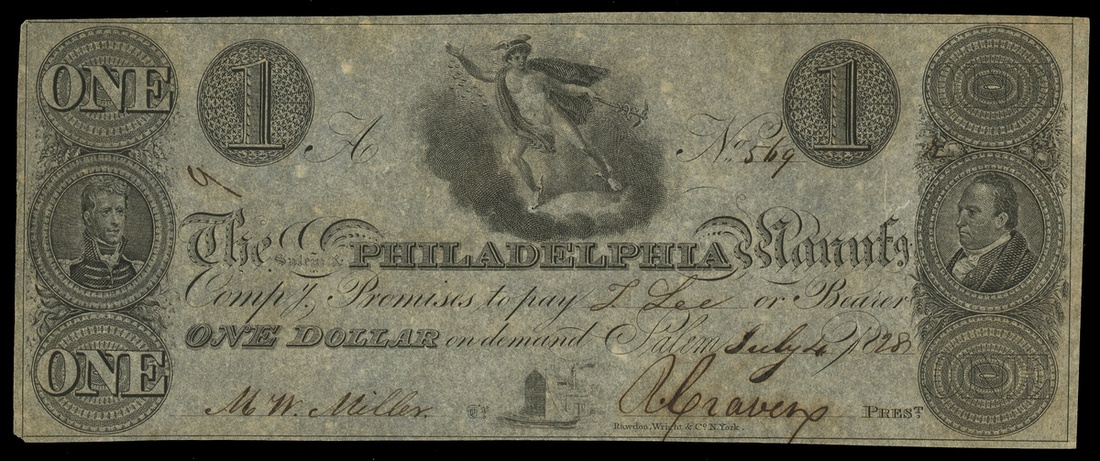 ONE 1 1
A No. 569
9
The Salem & PHILADELPHIA Manufg
Compy. Promises to pay T. Lee or Bearer
ONE DOLLAR on demand Salem July 4 1828
ONE M W. Miller. Cravens PREST.
Rawdon, Wright & Co. N. York.